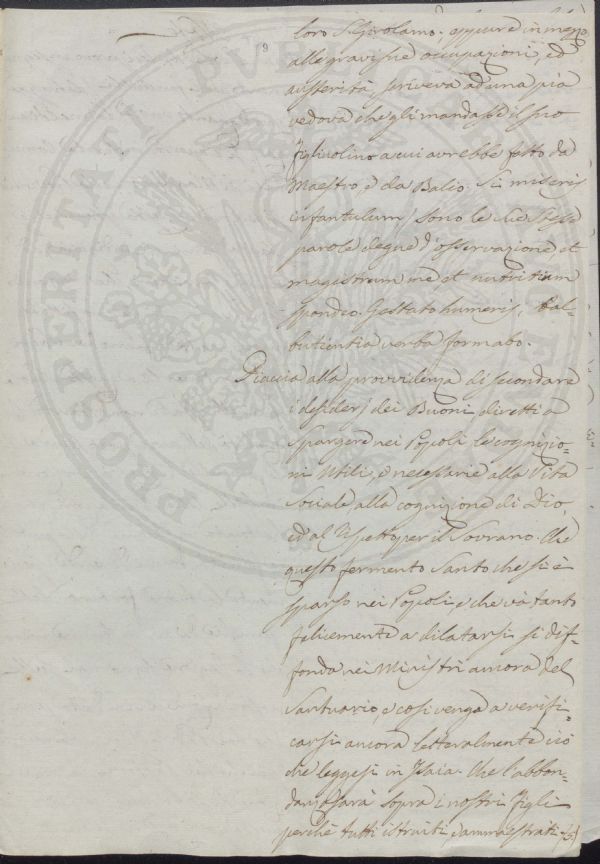 9
loro S. Girolamo. eppure in mezzo
alle gravissime occupazioni, ed
austerità, scriveva ad una pia
vedova che gli mandasse il suo
figliuolino a cui avrebbe fatto da
Maestro, e da Balio. Si miseris
infantulum, sono le sue stesse
parole degne d'osservazione et
magistrum me et nutritium
spondeo. Gestabo humeris, bal-
butientia verba formabo.
Piaccia alla provvidenza di secondare
i desiderj dei Buoni diretti a
spargere nei Popoli le cognizio-
ni utili, e necessarie alla Vita
sociale alla cognizione di Dio,
ed al Rispetto per il Sovrano. Che
questo fermento Santo che si è
sparso nei Popoli e che và tanto
felicemente a dilatarsi si dif-
fonda nei Ministri ancora del
Santuario, e così venga a verifi-
carsi ancora letteralmente ciò
che leggesi in Isaia. Che l'abbon-
danza sarà sopra i nostri figli
perchè tutti istruiti, ammaestrati
PROSPERITATI PUBLICAE